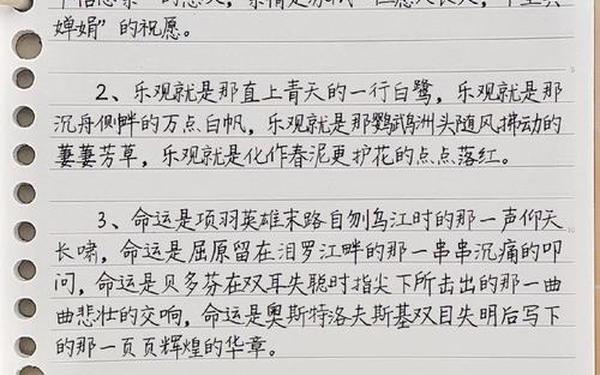 婵娟”的祝愿。
2、乐观就是那直上青天的一行白鹭，乐观就是那
沉舟侧畔的万点白帆，乐观就是那鹦鹉洲头随风拂动的
萋萋芳草，乐观就是化作春泥更护花的点点落红。
3、命运是项羽英雄末路自刎乌江时的那一声仰天
长啸，命运是屈原留在汨罗江畔的那一串串沉痛的叩
问，命运是贝多芬在双耳失聪时指尖下所击出的那一曲
曲悲壮的交响，命运是奥斯特洛夫斯基双目失明后写下
的那一页页辉煌的华章。